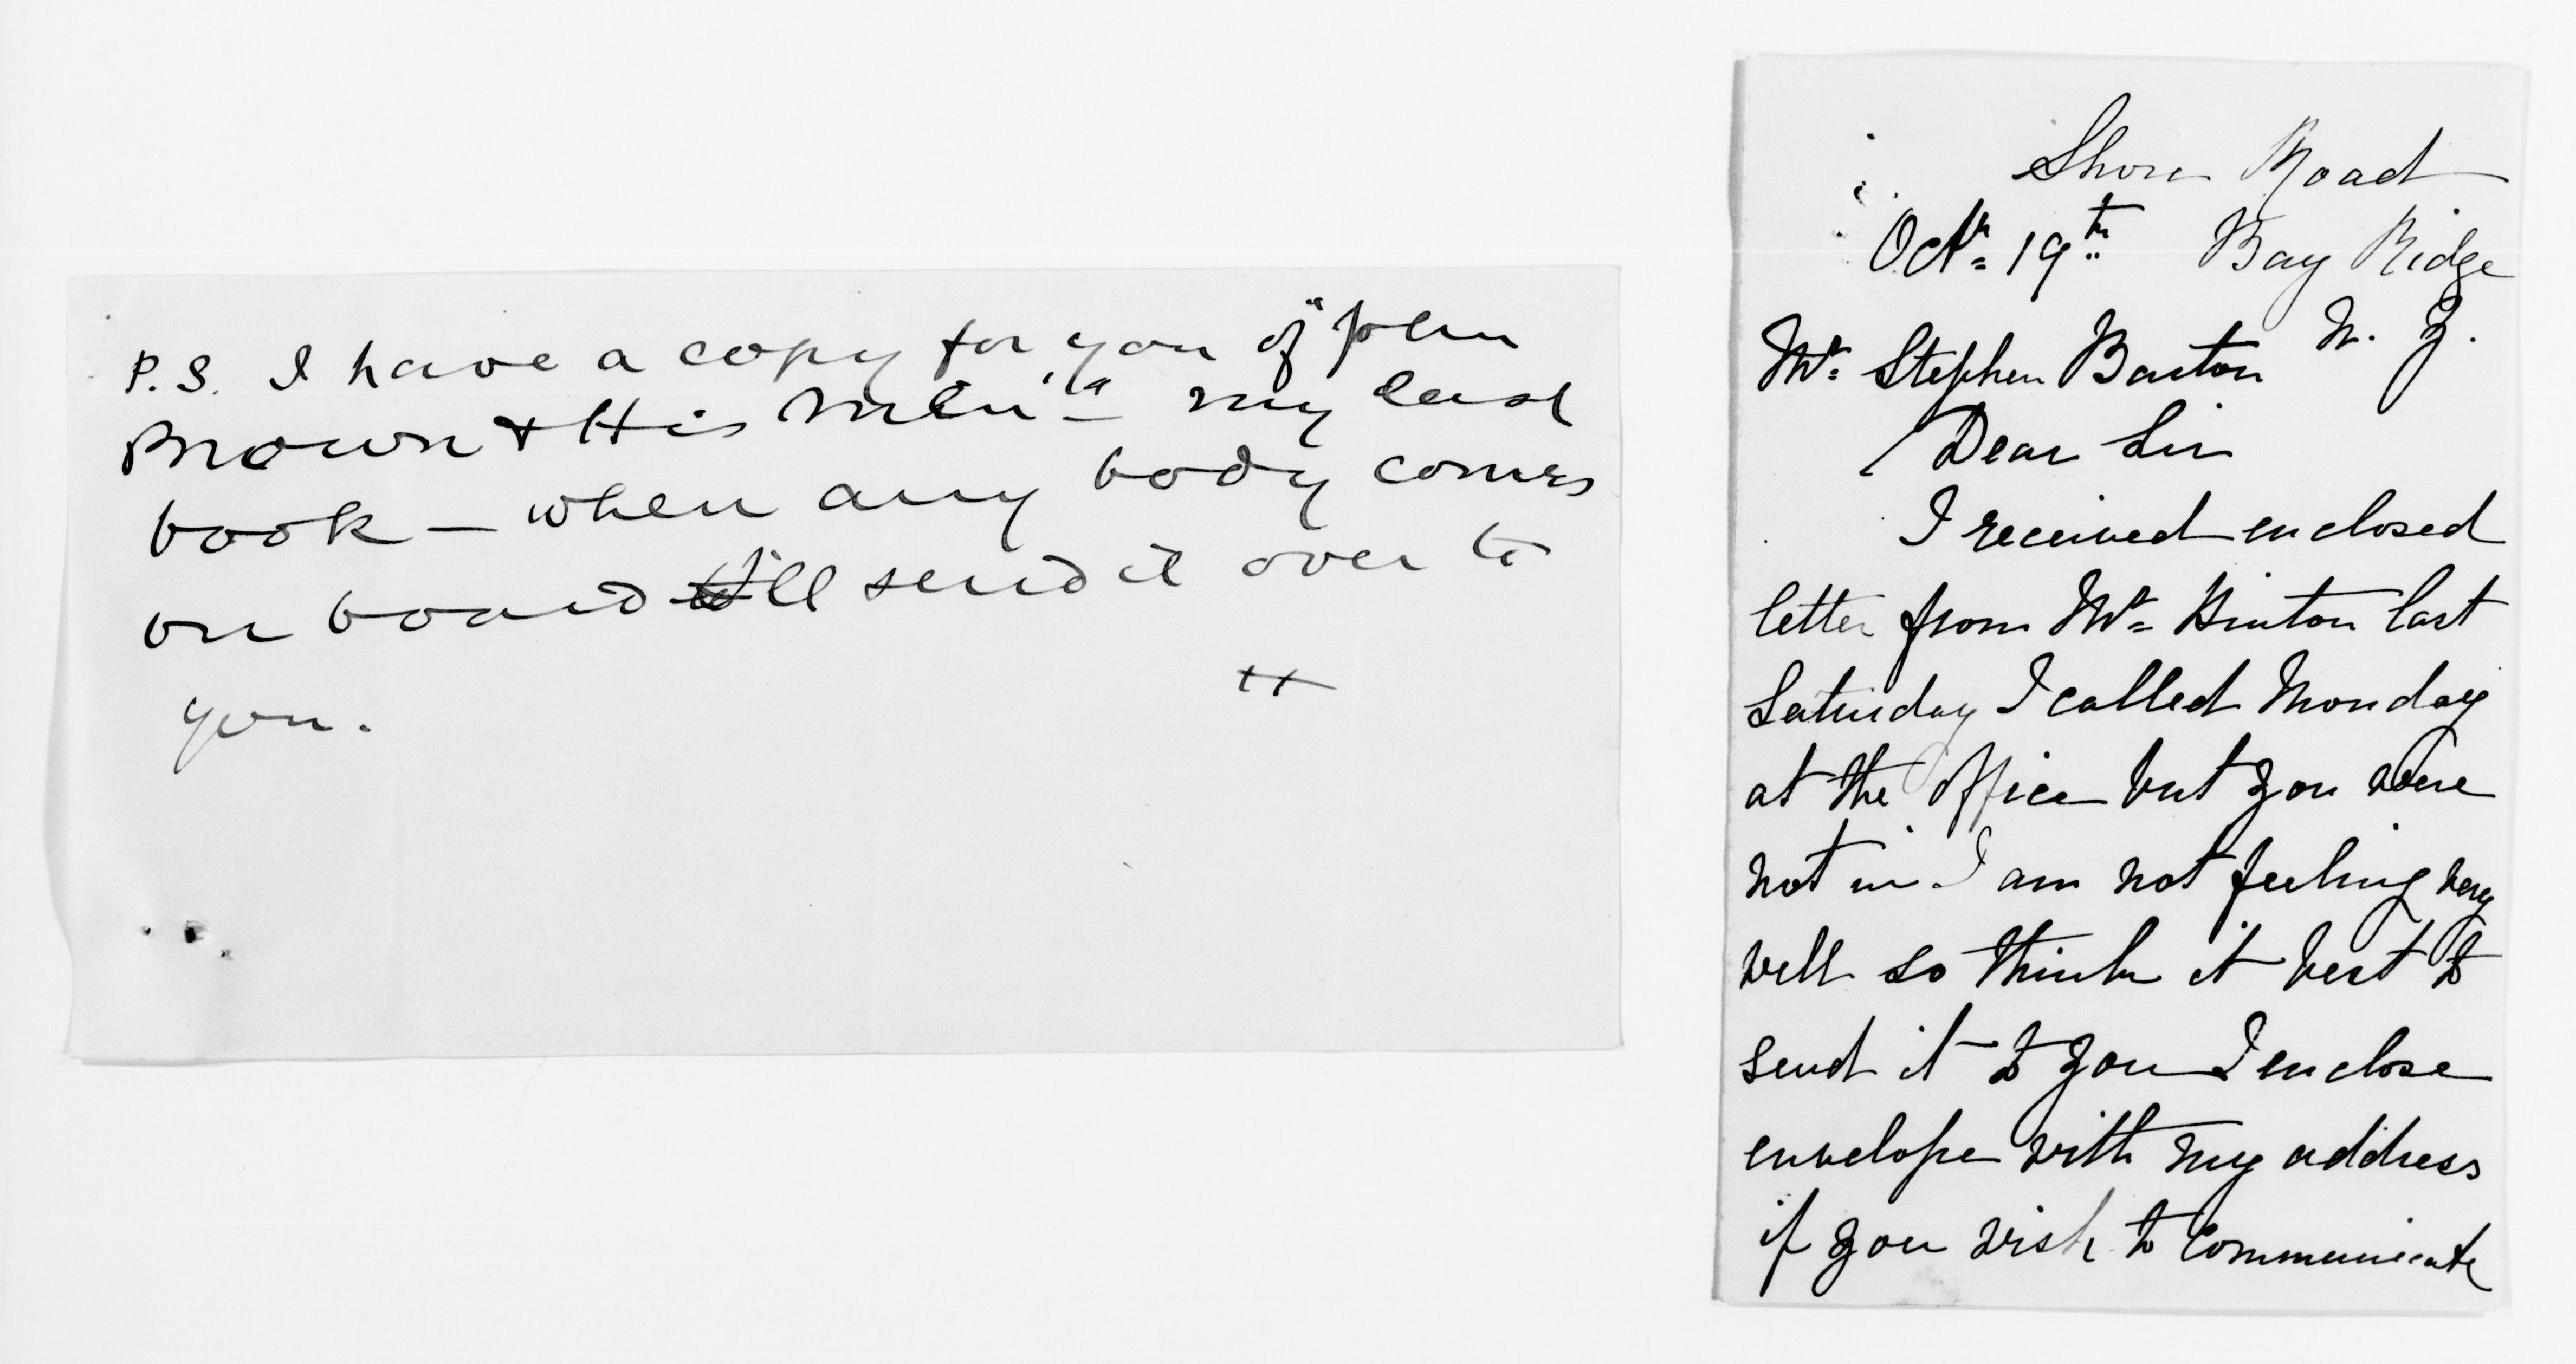 P.S. I have a copy for you of "John
Brown & His Men" – my last
book – when any body comes
on board I'll send it over to
you.
H
Shore Road
Octr 19th Bay Ridge
N. Y.
Mr Stephen Barton
Dear Sir
I received enclosed
letter from Mr Hinton last
Saturday I called Monday
at the office but you were
not in I am not feeling very
well so think it best to
send it to you I enclose
envelope with my address
if you wish to communicate